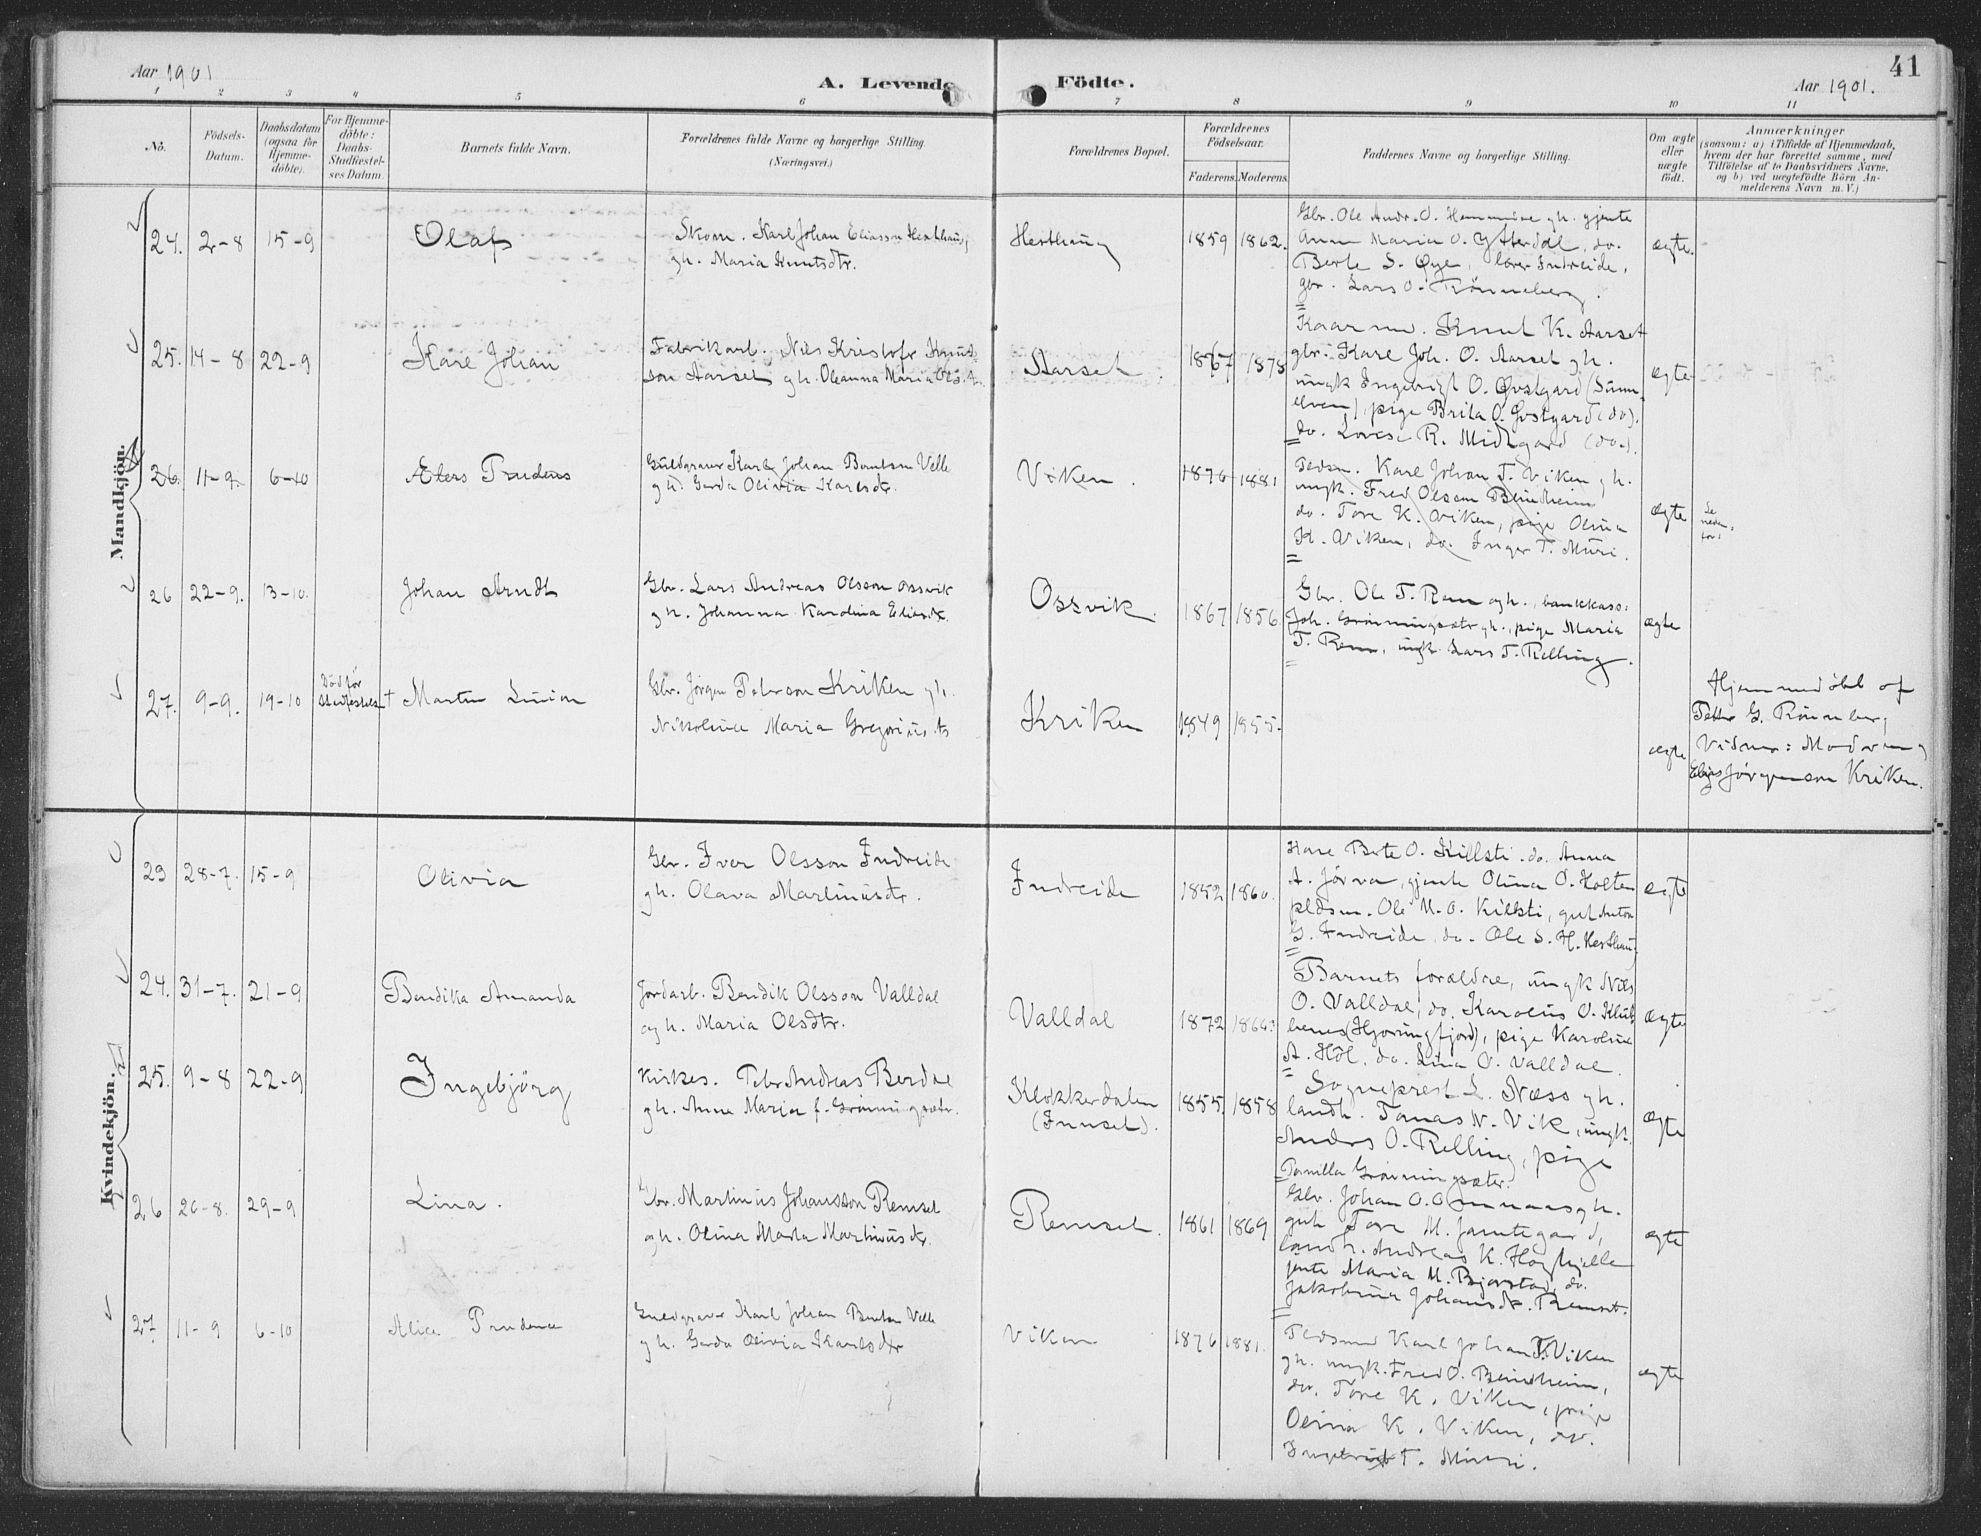 41
Aar 1901
A. Levende Födte.
Aar 1901.
1 2 3 4 5 6 7 8 9 10 11
No.
Födsels-
Datum.
Daabsdatum
(ogsaa for
Hjemme-
döbte).
For Hjemme-
döbte:
Daabs-
Stadfæstel-
ses Datum.
Barnets fulde Navn.
Forældrenes fulde Navne og borgerlige Stilling.
(Næringsvei.)
Forældrenes Bopæl.
Forældrenes
Födselsaar.
Faderens. Moderens.
Faddernes Navne og borgerlige Stilling.
Om ægte
eller
uægte
födt.
Anmærkninger
(saasom: a) i Tilfælde af Hjemmedaab,
hvem der har forrettet samme, med
Tilföielse af to Daabsvidners Navne,
og b) ved uægtefödte Börn An-
melderens Navn m. V.)
Mandkjön.
24. 2-8 15-9
Olaf
Skom. Karl Johan Eliasson Hesthaug,
gh. Maria Knutsdtr.
Hesthaug
1859 1862.
Gbr. Ole Andr. O. gh. gjente
Anne Maria O. Ytterdal, do.
Berte S. Øye, lærer Indreide,
gbr. Lars O. Rønneberg.
ægte.
25. 14-8 22-9
Kare Johan
Fabrikarb. Nils Kristofr Knuds-
son Aarset gh. Oleanna Maria
Aarset.
1867 1878
Kaarm. Knut K. Aarset
gbr. Karl Joh. O. Aarset gh.
ungk Ingebrigt O. Øvstgard (Sunn-
elven), pige Brita O. Øvstgard (do).
do. Lovise R. Midtgard (do.).
ægte
26. 11-9. 6-10
Prudens
Guldgraver Karl Johan Berntsen Velle
gh. Gerda Olivia Karlsdtr.
Viken.
1876 1881
Pldsm. Karl Johan T. Viken gh.
ungk. Fred Olsson Blindheim
do. Tore K. Viken, pige Olina
K. Viken, do. Inger T. Muri.
ægte
Se
neden-
for!
26 22-9. 13-10.
Johan Arndt
Gbr. Lars Andreas Olsson Ossvik
gh. Johanna Karolina Eliasdtr.
Ossvik.
1867 1856
Gbr. Ole T. Rem gh., bankkass:
Joh. Grønningsæter gh., pige Maria
T. Rem, ungk Lars T. Relling.
ægte
27. 9-9. 19-10
Død før
Stadfæstels †
Martin Linion
Gbr. Jørgen Peterson Kriken gh.
Nikoline Maria Gregorius.dtr
Kriken
1849 1855.
ægte
Hjemmedøbt af
Petter G. Rønneberg
Vidner: Moderen og
Elias Jørgenson Kriken.
Kvindekjön.
23 28-7. 15-9
Olivia
Gbr. Iver Olsson Indreide
gh. Olava Martinusdtr.
Indreide
1852 1860.
Kone Berte O. Killsti. do. Anna
A. Jørva, gjente Olina O. Holten
pldsm. Ole M. O. Killsti, gut Anton
G. Indreide, do. Ole S. H. Hesthaug
ægte
24. 31-7. 21-9
Bendika Amanda
Jordarb. Bendik Olsson Valldal
og h. Maria Olsdtr.
Valldal
1872 1866.
Barnets forældre, ungk Nils
O. Valldal, do. Karolus O. Klub-
benes (Hjørungfjord), pige Karoline
A. Hól, do. Lina O. Valldal.
ægte
25. 9-8 22-9
Ingebjörg
Kirkes. Peter Andreas Berdal
gh. Anne Maria f. Grønningsæter.
Klokkerdalen
(Linset).
1855. 1858
Sogneprest L. Næss gh.
landh. Tomas N. Vik, ungk.
Anders O. Relling, pige
Pernilla Grønningsæter.
ægte
26 20-8. 29-9
Lina.
Gbr. Martinus Johansson Remset
og h. Olina Marta Martinusdtr.
Remset.
1861 1869
Gbr. Johan O. Omnaas gh.
gut Tore M. Jamtegard,
landh. Andreas K. Høghjelle
jente Maria M. Bjørstad, do.
Jakobina Johansdtr. Remset.
ægte
27. 11-9 6-10
Alice Prudence
Guldgraver Karl Johan Berntsen Velle
gh. Gerda Olivia Karlsdtr
Viken
1876 1881.
Pldsmd Karl Johan T. Viken
gh. ungk. Fred O. Blindheim,
do. Tore K. Viken, pige
Olina K. Viken, do.
T. Muri.
ægte